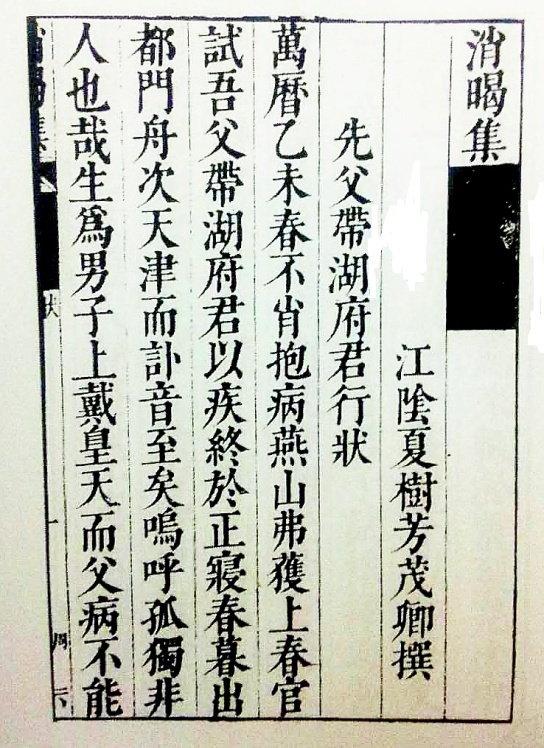 消暍集
江陰夏樹芳茂卿撰
先父帶湖府君行狀
萬曆乙未春不肖抱病燕山弗獲上春官
試吾父帶湖府君以疾終於正寢春暮出
都門舟次天津而訃音至矣嗚呼孤獨非
人也哉生爲男子上戴皇天而父病不能